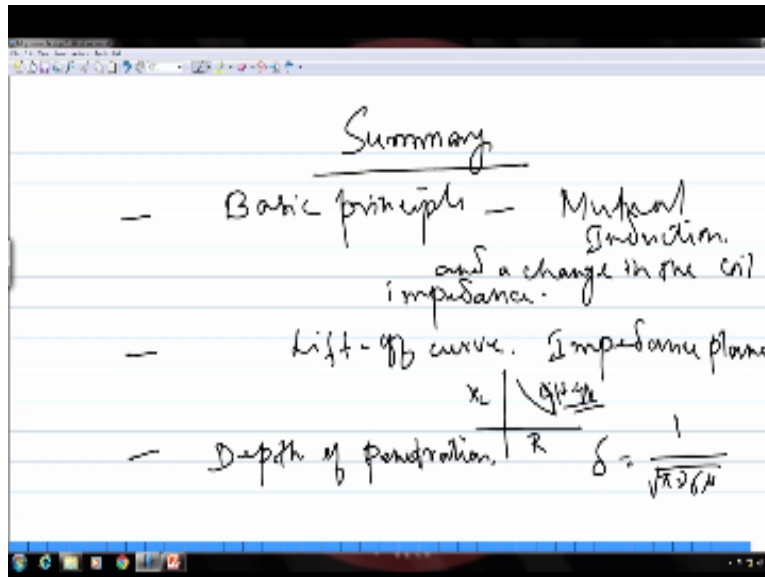 Summary
— Basic principle — Mutual
Induction.
and a change in the coil
impedance.
— Lift-off curve. Impedance plane
X_L
R
— Depth of penetration. δ = 1/√(πνσμ)